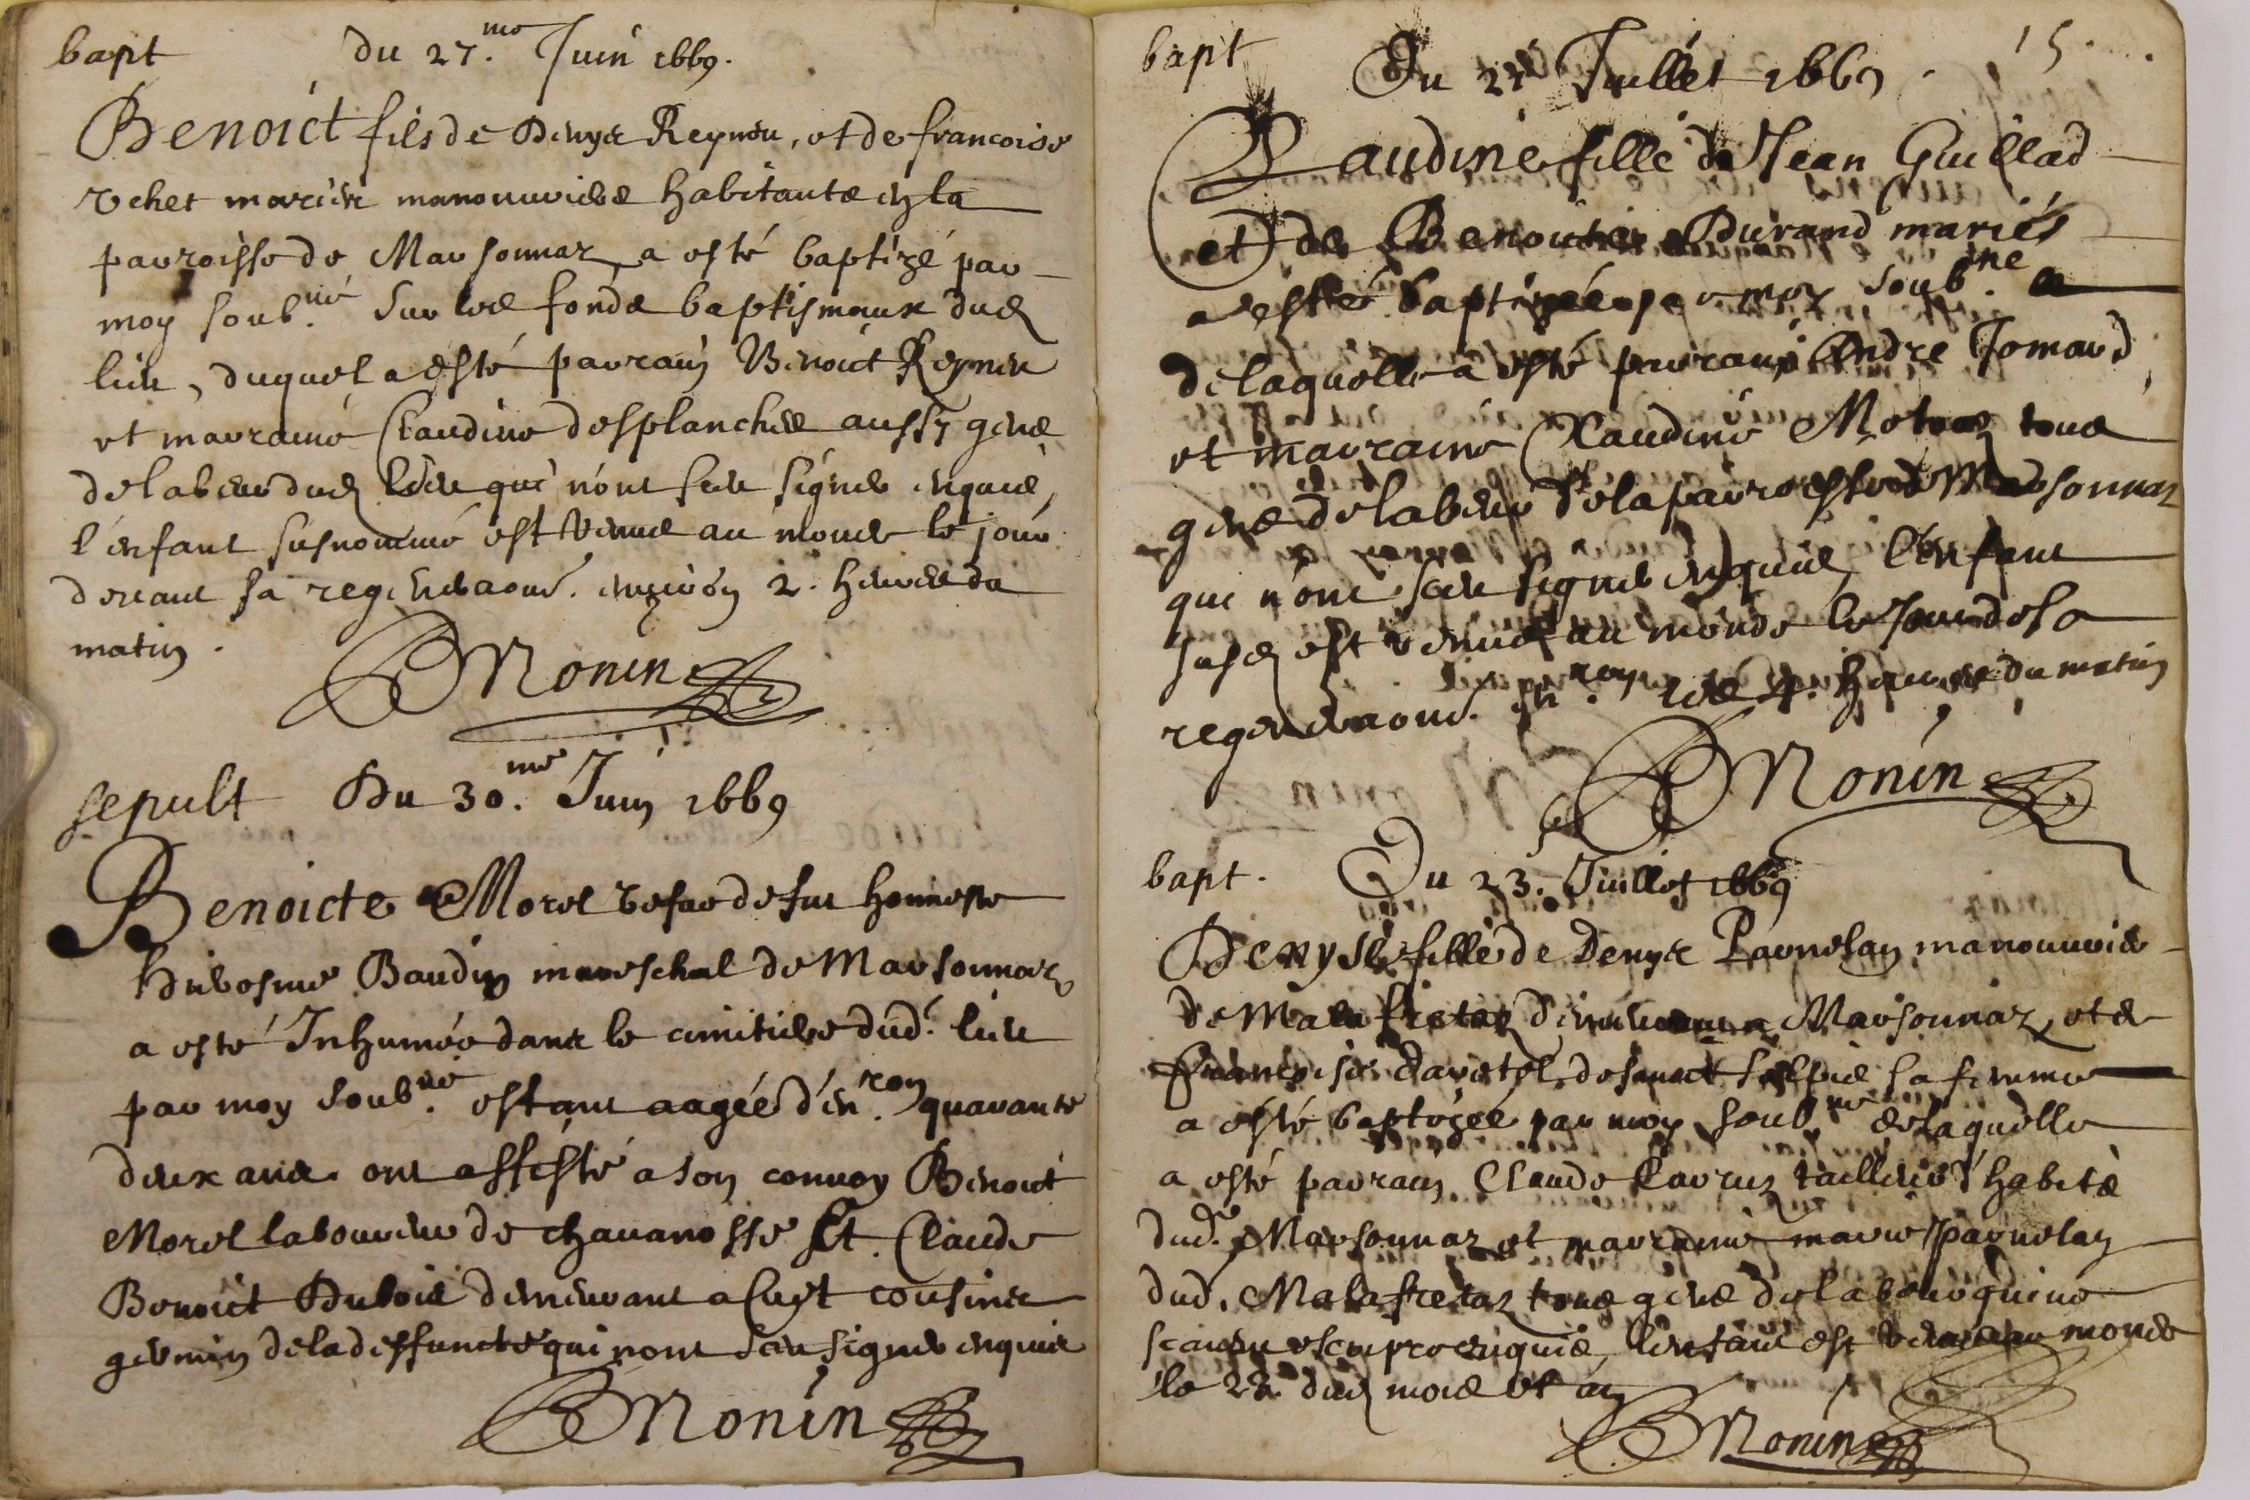 bapt du 27.me Juin 1669.
Benoict fils de Denys Reyneu, et de francoise
vchet mariés manouuriers habitants en la
parroisse de Marsonnaz, a esté baptizé par
moy soub.né sur les fonds baptismaux dud
lieu, duquel a esté parrain Benoict Reyneu
et marraine Claudine desplanches aussy gens
de labeur dud lieu qui n'ont sceu signer enquis,
l'enfant susnommé est venus au monde le jour
deuant sa regeneraon. enuiron 2. heures du
matin.
BMonin
sepult Du 30.me Juin 1669
Benoicte Morel vefue de fut honneste
Hierosme Baudin mareschal de Marsonnaz
a esté Inhumée dans le cimitiere dud. lieu
par moy soub.né estant aagée d'en.ron quarante
deux ans. ont assisté a son conuoy Benoict
Morel laboureur de chauanosse Et Claude
Benoict Dubois demeurant a Cuyt cousins
germin de la deffuncte qui n'ont sceu signer enquis
BMonin
15.
bapt Du Juillet 1669.
Claudine fille de Jean Guillad
et de Benoiste Durand mariés
a esté baptizée par moy soub.né
de laquelle a esté parrain Andre Jomard
et marraine Claudine tous
gens de labeur de la parroisse de Marsonnaz
qui n'ont sceu signer enquis, l'enfant
susd est venue au monde le jour de sa
regeneraon. en.ron les 4. heures du matin
BMonin
bapt. Du 23. Juillet 1669
Denyse fille de Denys Parnolay manouurier
de Malafretaz Marsonnaz, et de
Francoise sa femme
a esté baptizée par moy soub.né de laquelle
a esté parrain Claude tailleur d'habits
dud. Marsonnaz et marraine marie parnolay
dud. Malafretaz tous gens de labeur qui ne
scauent escripre enquis, l'enfant est venue au monde
le 22 dud mois et an
BMonin